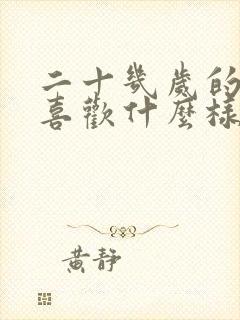 二十幾歲的
喜歡什麼樣
黃靜